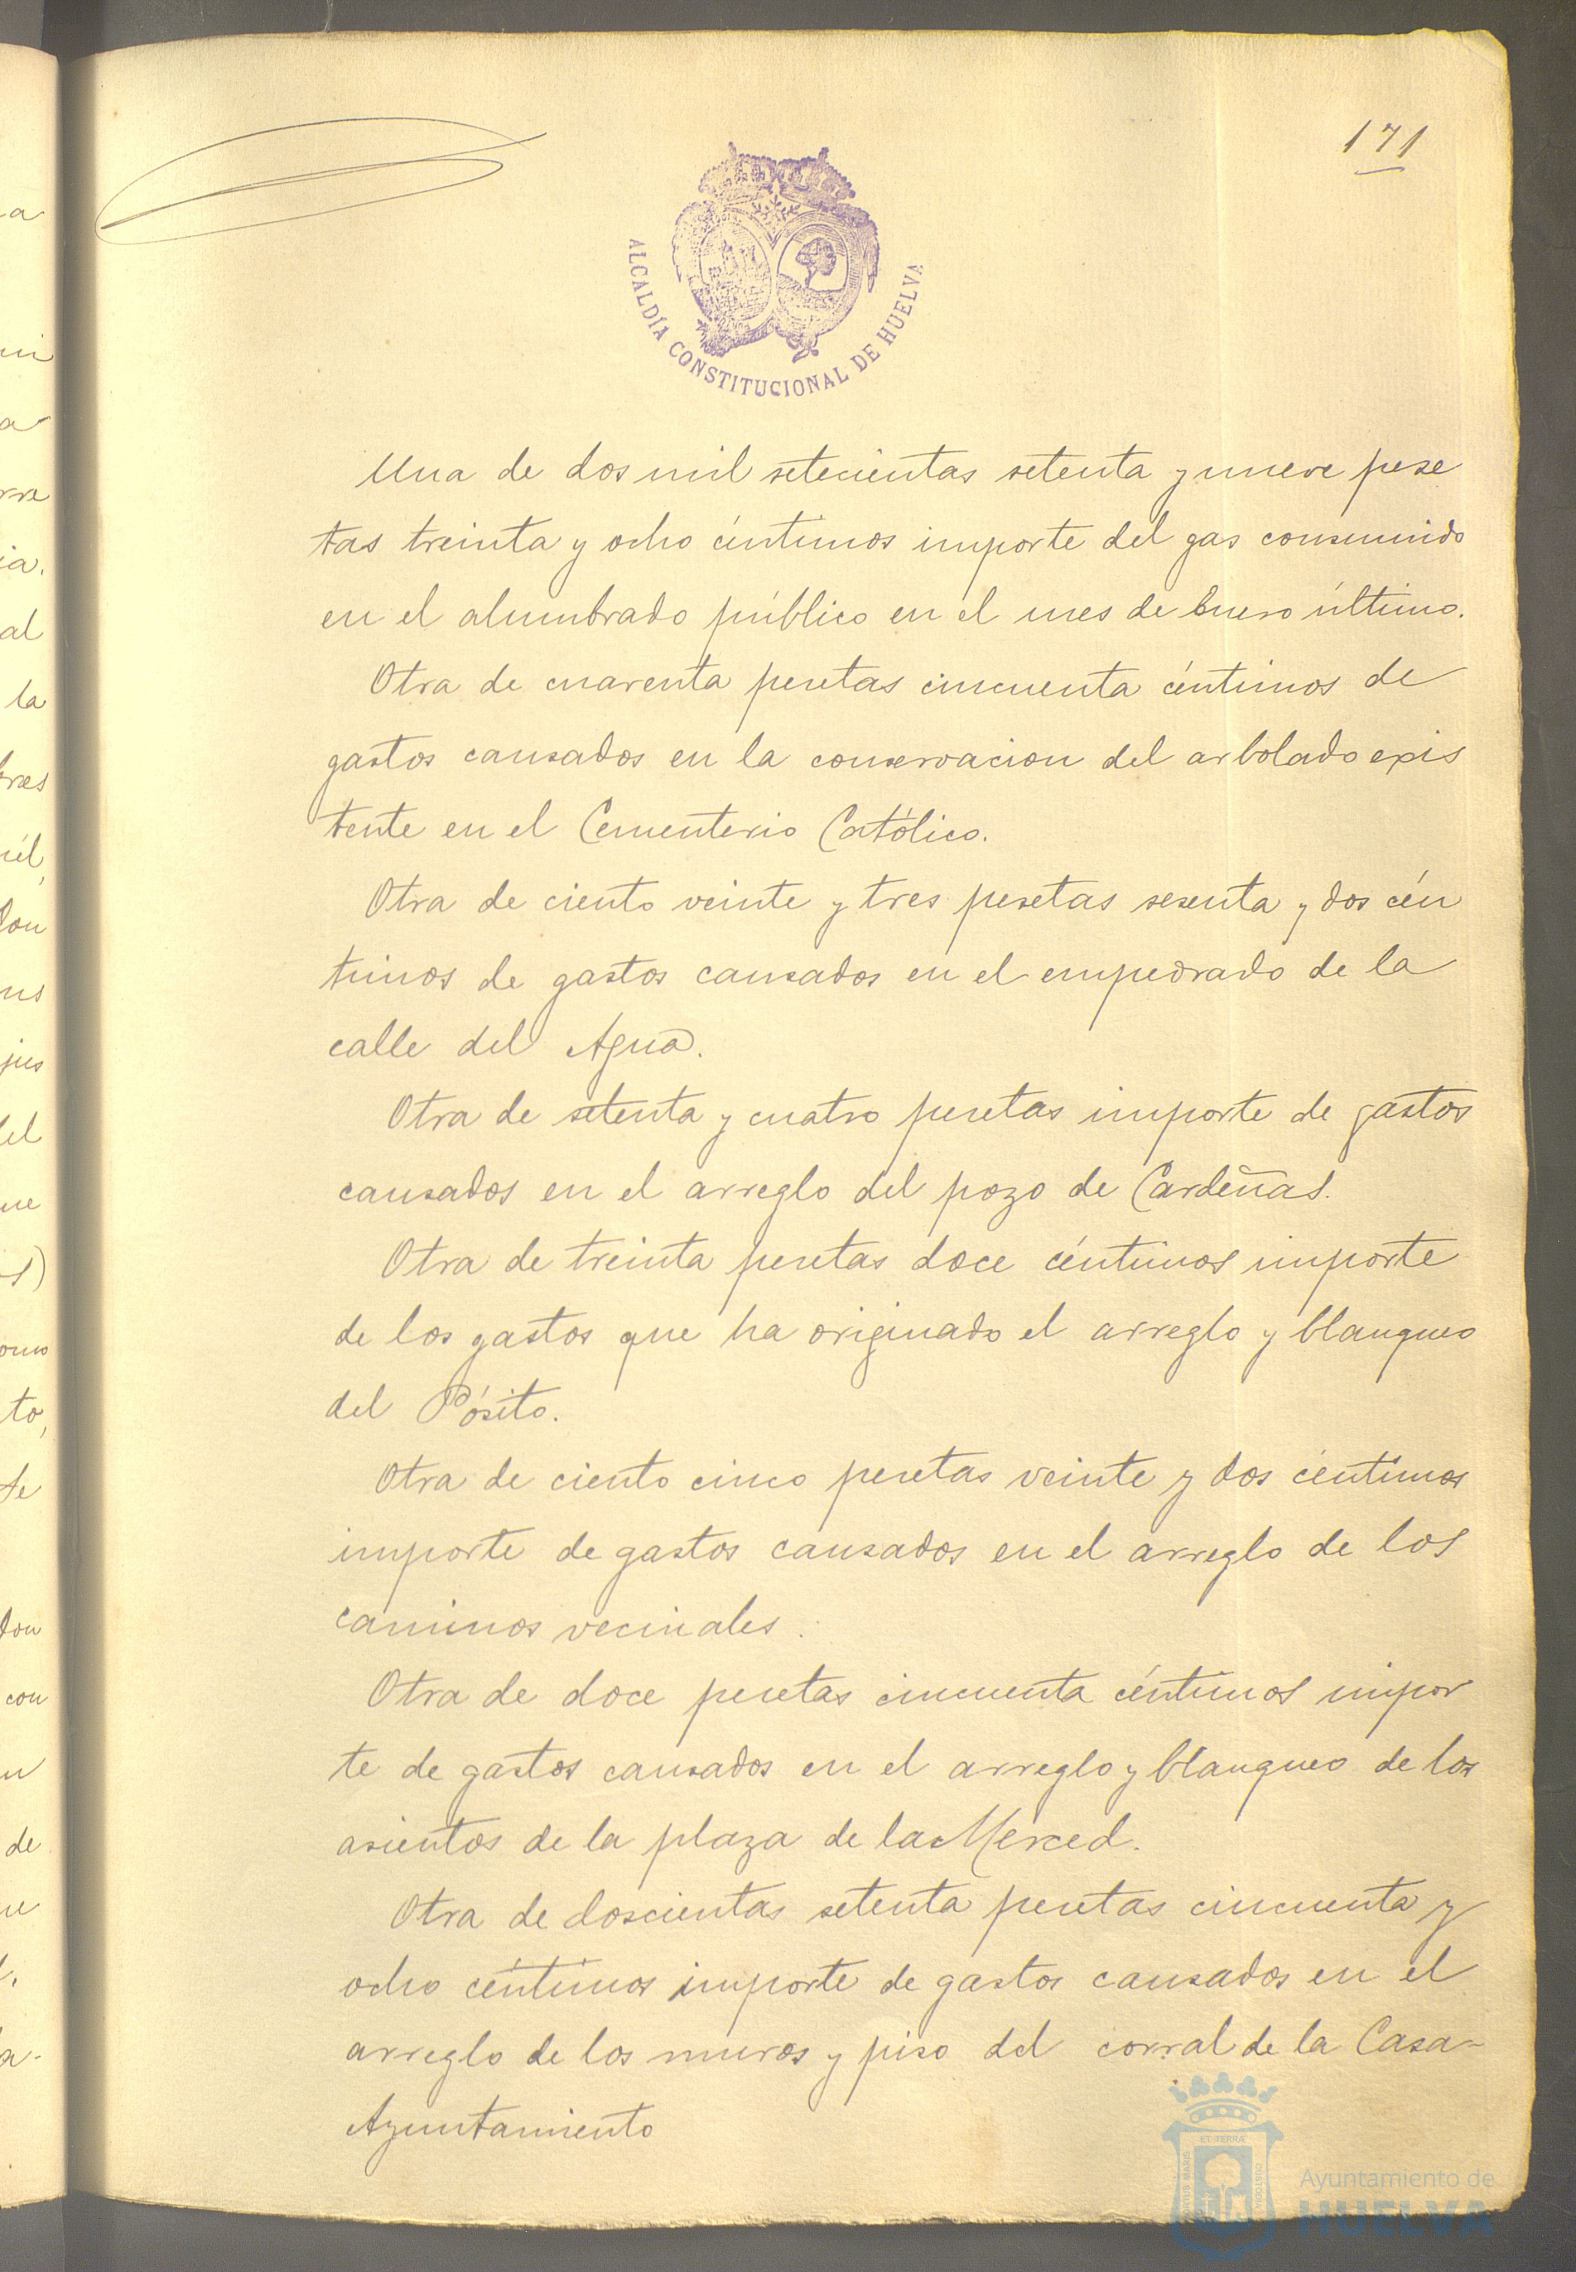 171
ALCALDÍA CONSTITUCIONAL DE HUELVA
Una de dos mil setecientas setenta y nueve pese
tas treinta y ocho céntimos importe del gas consumido
en el alumbrado público en el mes de Enero último.
Otra de cuarenta pesetas cincuenta céntimos de
gastos causados en la conservacion del arbolado exis
tente en el Cementerio Católico.
Otra de ciento veinte y tres pesetas sesenta y dos cén
timos de gastos causados en el empedrado de la
calle del Agua.
Otra de setenta y cuatro pesetas importe de gastos
causados en el arreglo del pozo de Cardeñas.
Otra de treinta pesetas doce céntimos importe
de los gastos que ha originado el arreglo y blanqueo
del Pósito.
Otra de ciento cinco pesetas veinte y dos céntimos
importe de gastos causados en el arreglo de los
caminos vecinales.
Otra de doce pesetas cincuenta céntimos impor
te de gastos causados en el arreglo y blanqueo de los
asientos de la plaza de la Merced.
Otra de doscientas setenta pesetas cincuenta y
ocho céntimos importe de gastos causados en el
arreglo de los muros y piso del corral de la Casa-
Ayuntamiento
Ayuntamiento de
HUELVA